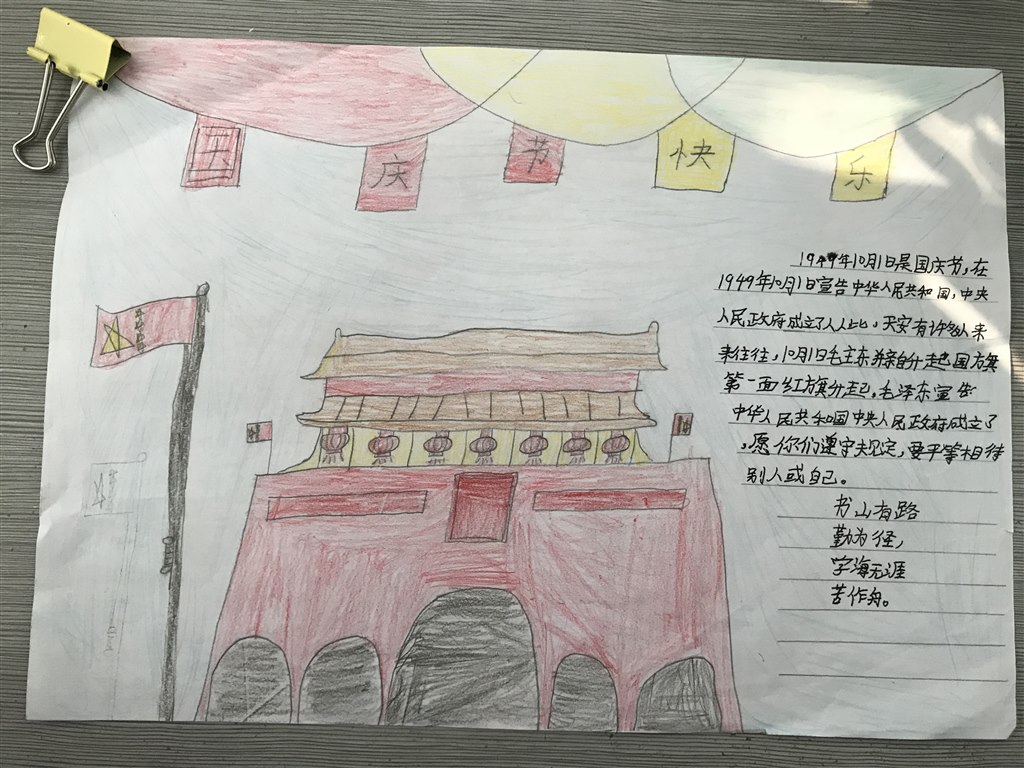 国
庆
节
快
乐
1949年10月1日是国庆节,在
1949年10月1日宣告中华人民共和国,中央
人民政府成立了人人比,天安有许多人来
来往往,10月1日毛主东并亲自升起国方旗
第一面红旗升起。毛泽东宣告
中华人民共和国中央人民政府成立了
,愿你们遵守规定,要平等相待
别人或自己。
书山有路
勤为径,
学海无涯
苦作舟。